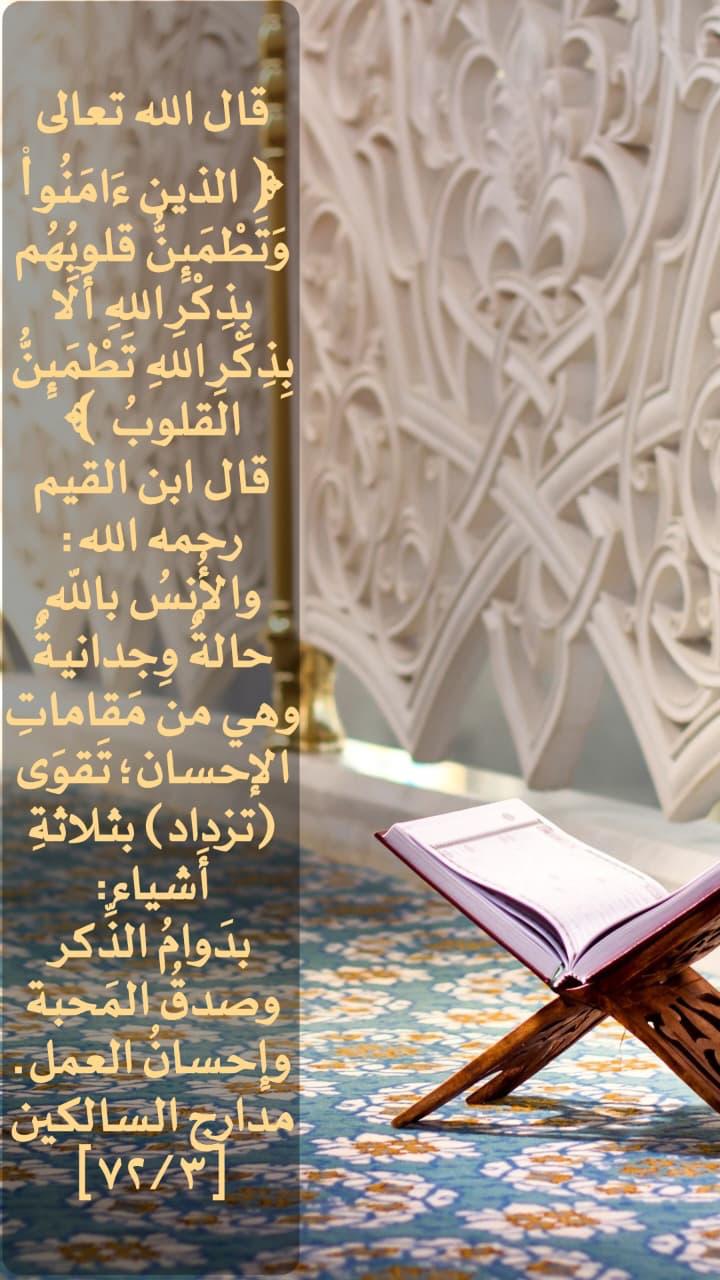 قال الله تعالى
﴿ الذين ءَامَنُواْ
وَتَطْمَئِنُّ قلوبُهُم
بِذِكْرِاللهِ أَلَا
بِذِكْرِاللهِ تَطْمَئِنُّ
القلوبُ ﴾
قال ابن القيم
رحمه الله :
والأُنسُ بالله
حالةٌ وِجدانيةٌ
وهي من مَقاماتِ
الإحسان؛ تَقوَى
(تزداد) بثلاثةِ
أَشياء:
بدَوامُ الذِّكر
وصدقُ المَحبة
وإحسانُ العمل.
مدارج السالكين
[٧٢/٣]